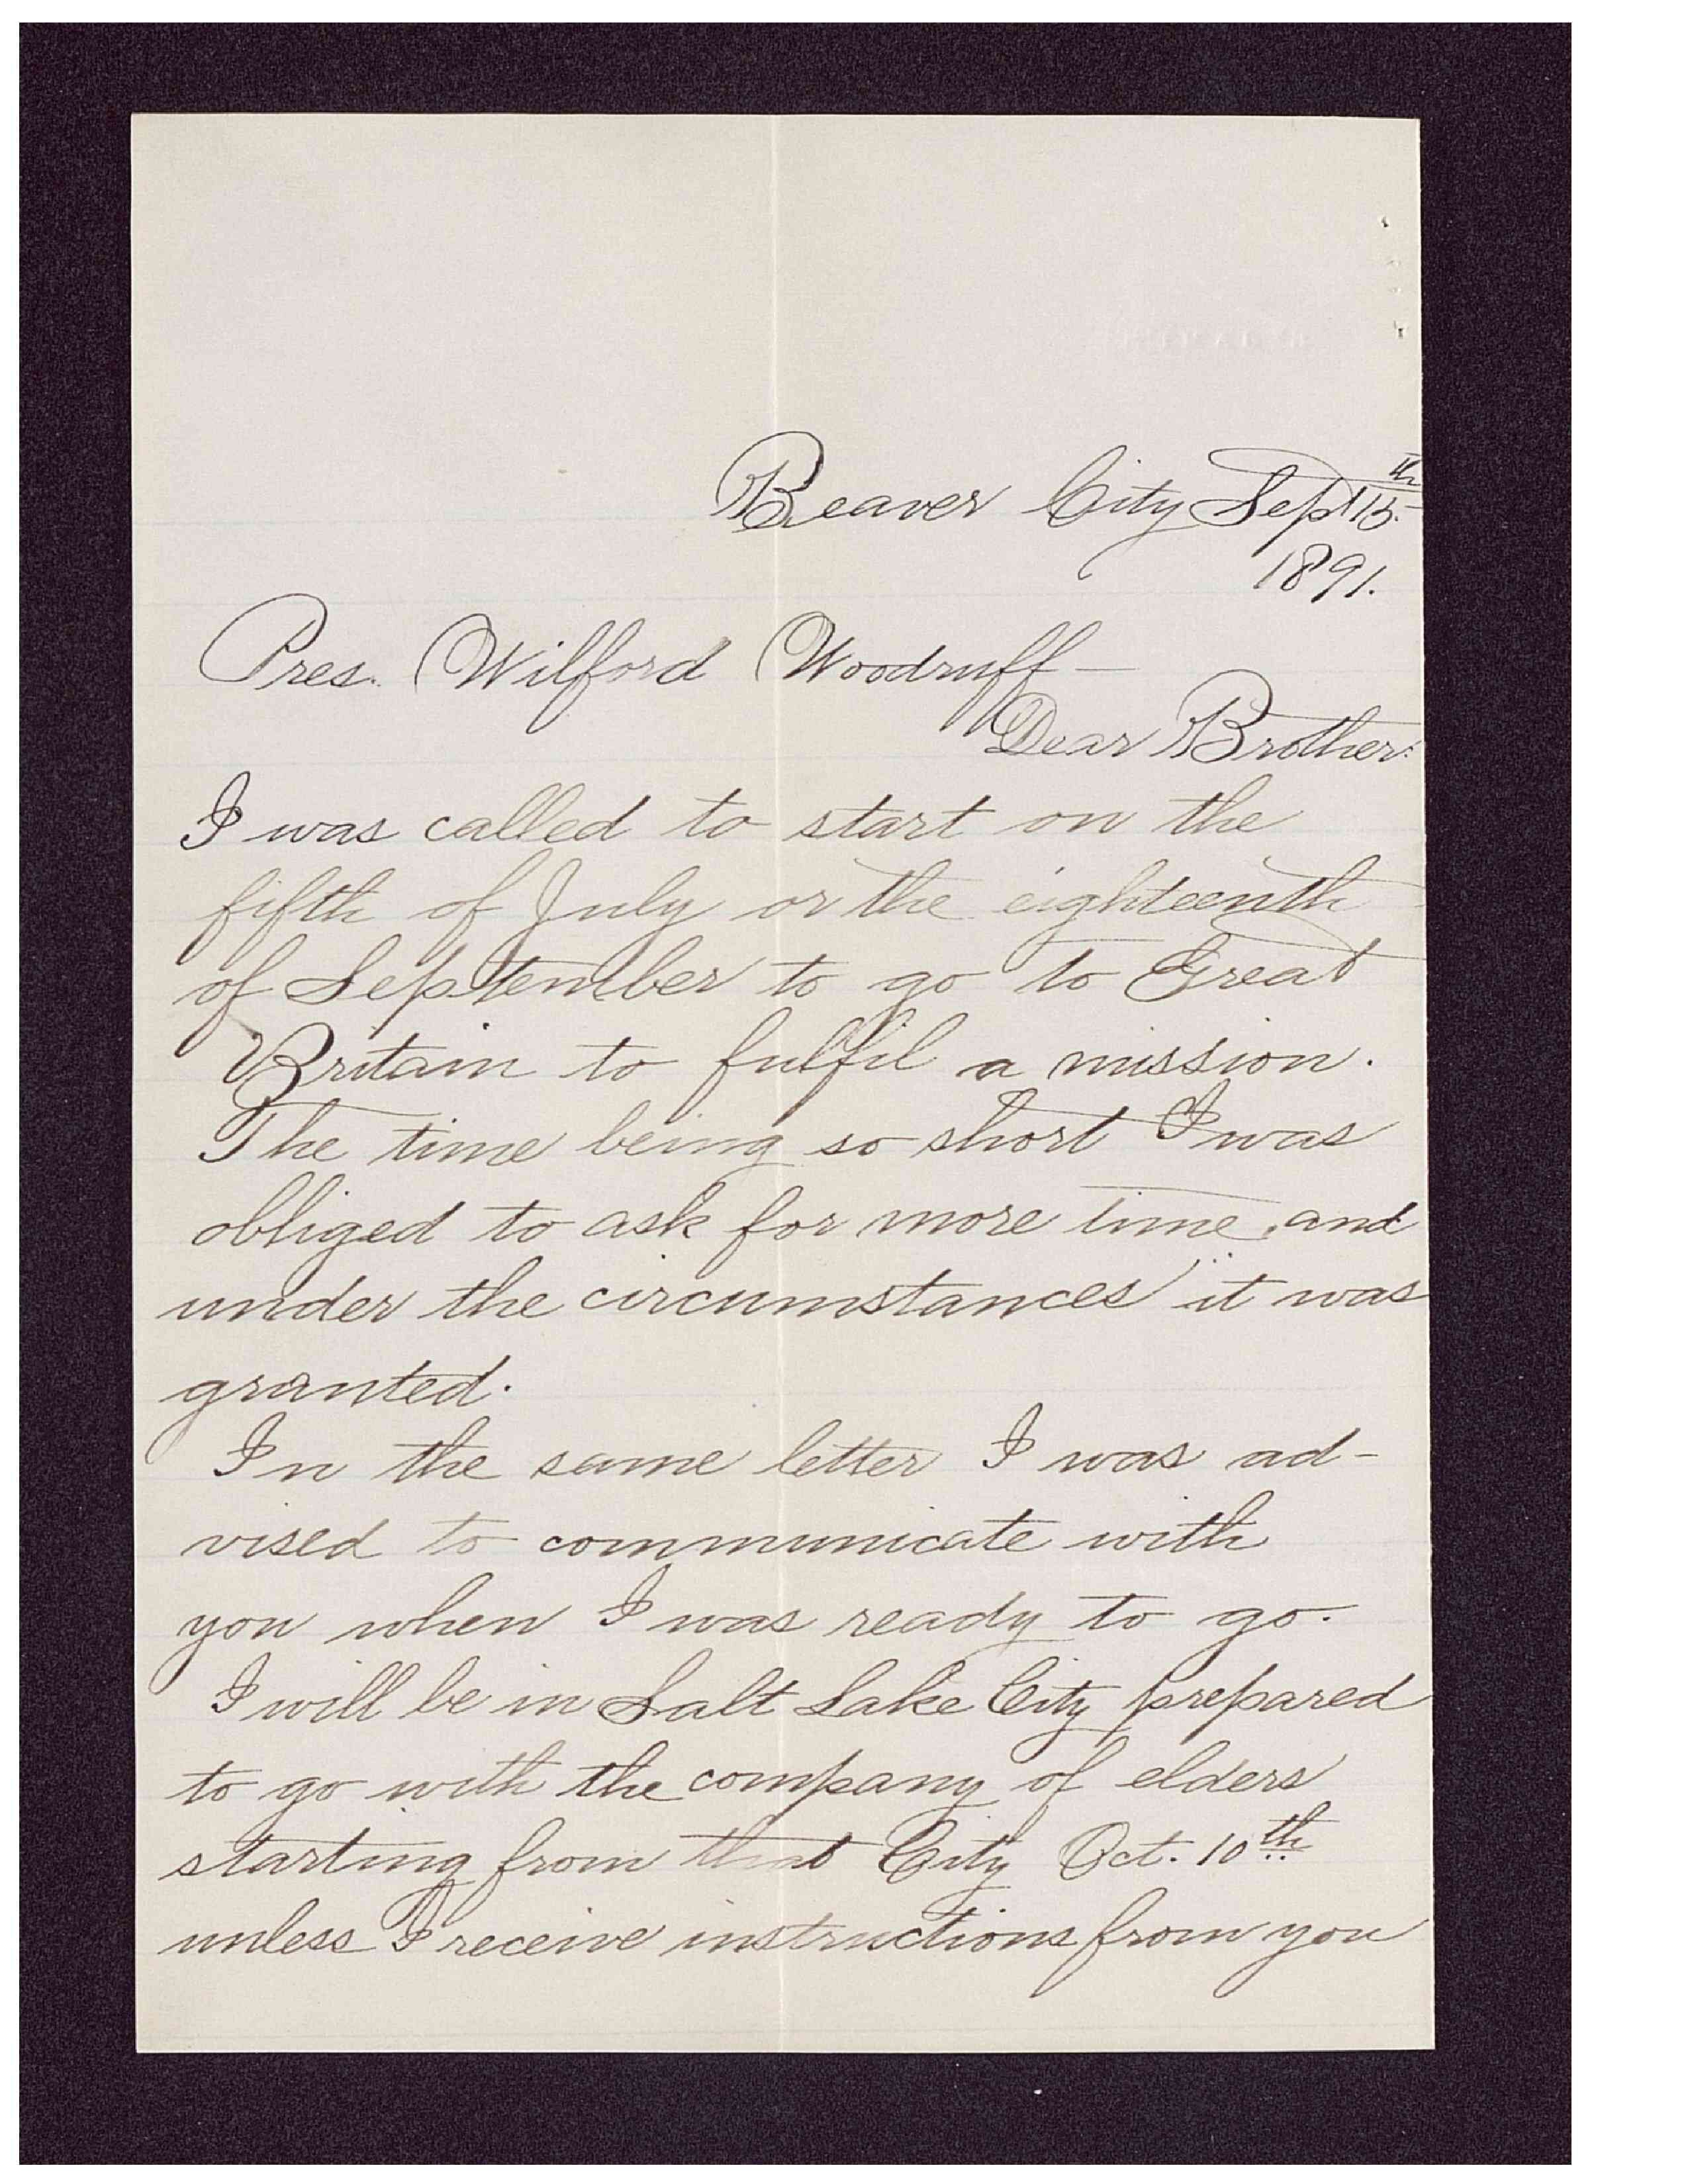 Beaver City Sept 15th
1891.
Pres. Wilford Woodruff—
Dear Brother:
I was called to start on the
fifth of July or the eighteenth
of September to go to Great
Britain to fulfil a mission.
The time being so short I was
obliged to ask for more time, and
under the circumstances it was
granted.
In the same letter I was ad-
vised to communicate with
you when I was ready to go.
I will be in Salt Lake City prepared
to go with the company of elders
starting from that City Oct. 10th
unless I receive instructions from you